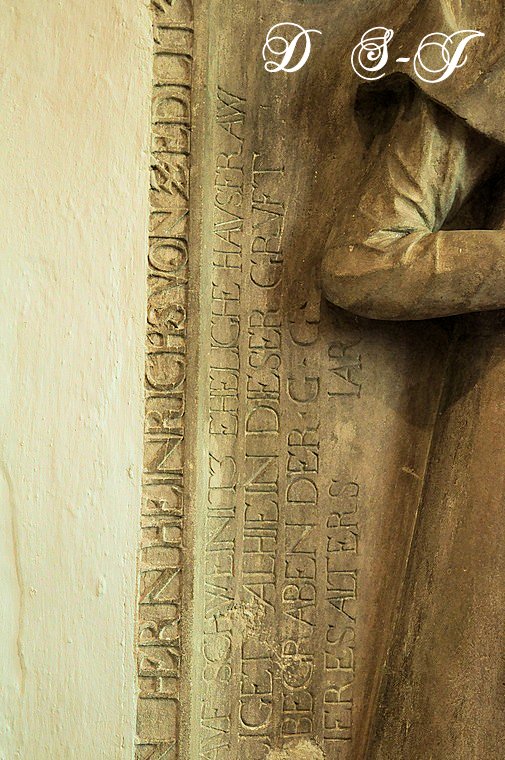 D S-J
N HERN HEINRICHS VON ZEDLITZ
AVF SCHWEINITZ EHELICHE HAVSFRAW
LIGET ALHIE IN DIESER GRVFT
BEGRABEN DER G · G ·
IFRES ALTERS IAR